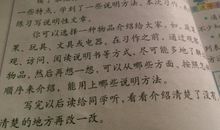 一些特点,学到了一些说明方法。本次习作,
练习写说明性文章。
你可以选择一种物品介绍给大家,如,蔬
果、玩具、文具或电器。在习作之前,通过观
观、访问、阅读说明书等方式,尽可能多地了解
物品,然后再想一想,可以从哪些方面,按照怎
顺序来介绍,能用上哪些说明方法。
写完以后读给同学听,看看介绍清楚了没有
清楚的地方再改一改。